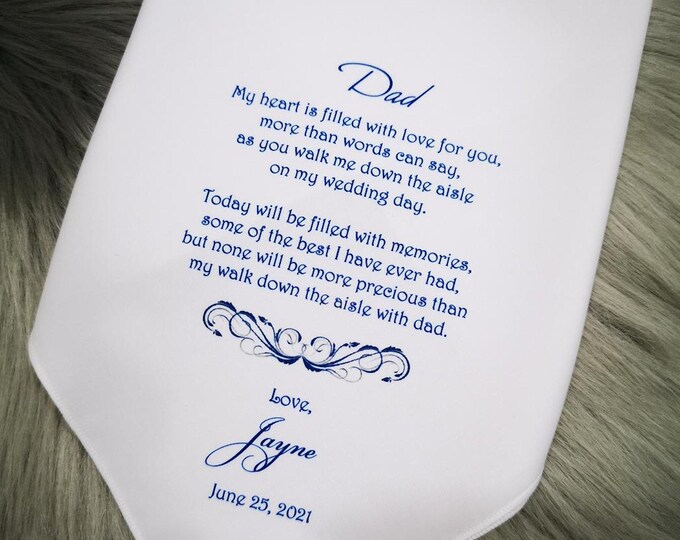 Dad
My heart is filled with love for you,
more than words can say,
as you walk me down the aisle
on my wedding day.
Today will be filled with memories,
some of the best I have ever had,
but none will be more precious than
my walk down the aisle with dad.
Love,
Jayne
June 25, 2021